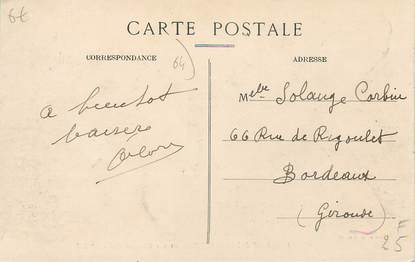 6€
CARTE POSTALE
CORRESPONDANCE
64
ADRESSE
a bientot
baiser
Melle Solange Corbin
66 Rue de Rigoulet
Bordeaux
(Gironde)
F
25